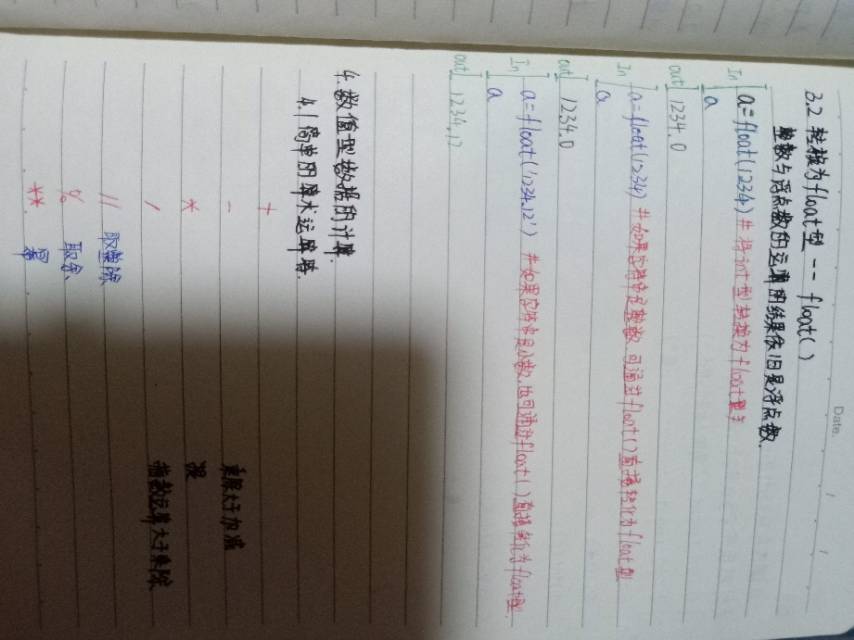 Date.
3.2 转换为float型 -- float()
整数与浮点数的运算的结果依旧是浮点数.
In a=float(1234) #将int型转换为float型
a
out 1234.0
In a=float(1234) #如果字符串是整数,可通过float()直接转化为float型
a
out 1234.0
In a=float('1234.12') #如果字符串是小数,也可通过float()直接转化为float型.
a
out 1234.12
4.数值型数据的计算.
4.1 简单的算术运算符.
+
- 乘除大于加减
*
/ 指数运算大于乘除
// 取整除
% 取余、
** 幂